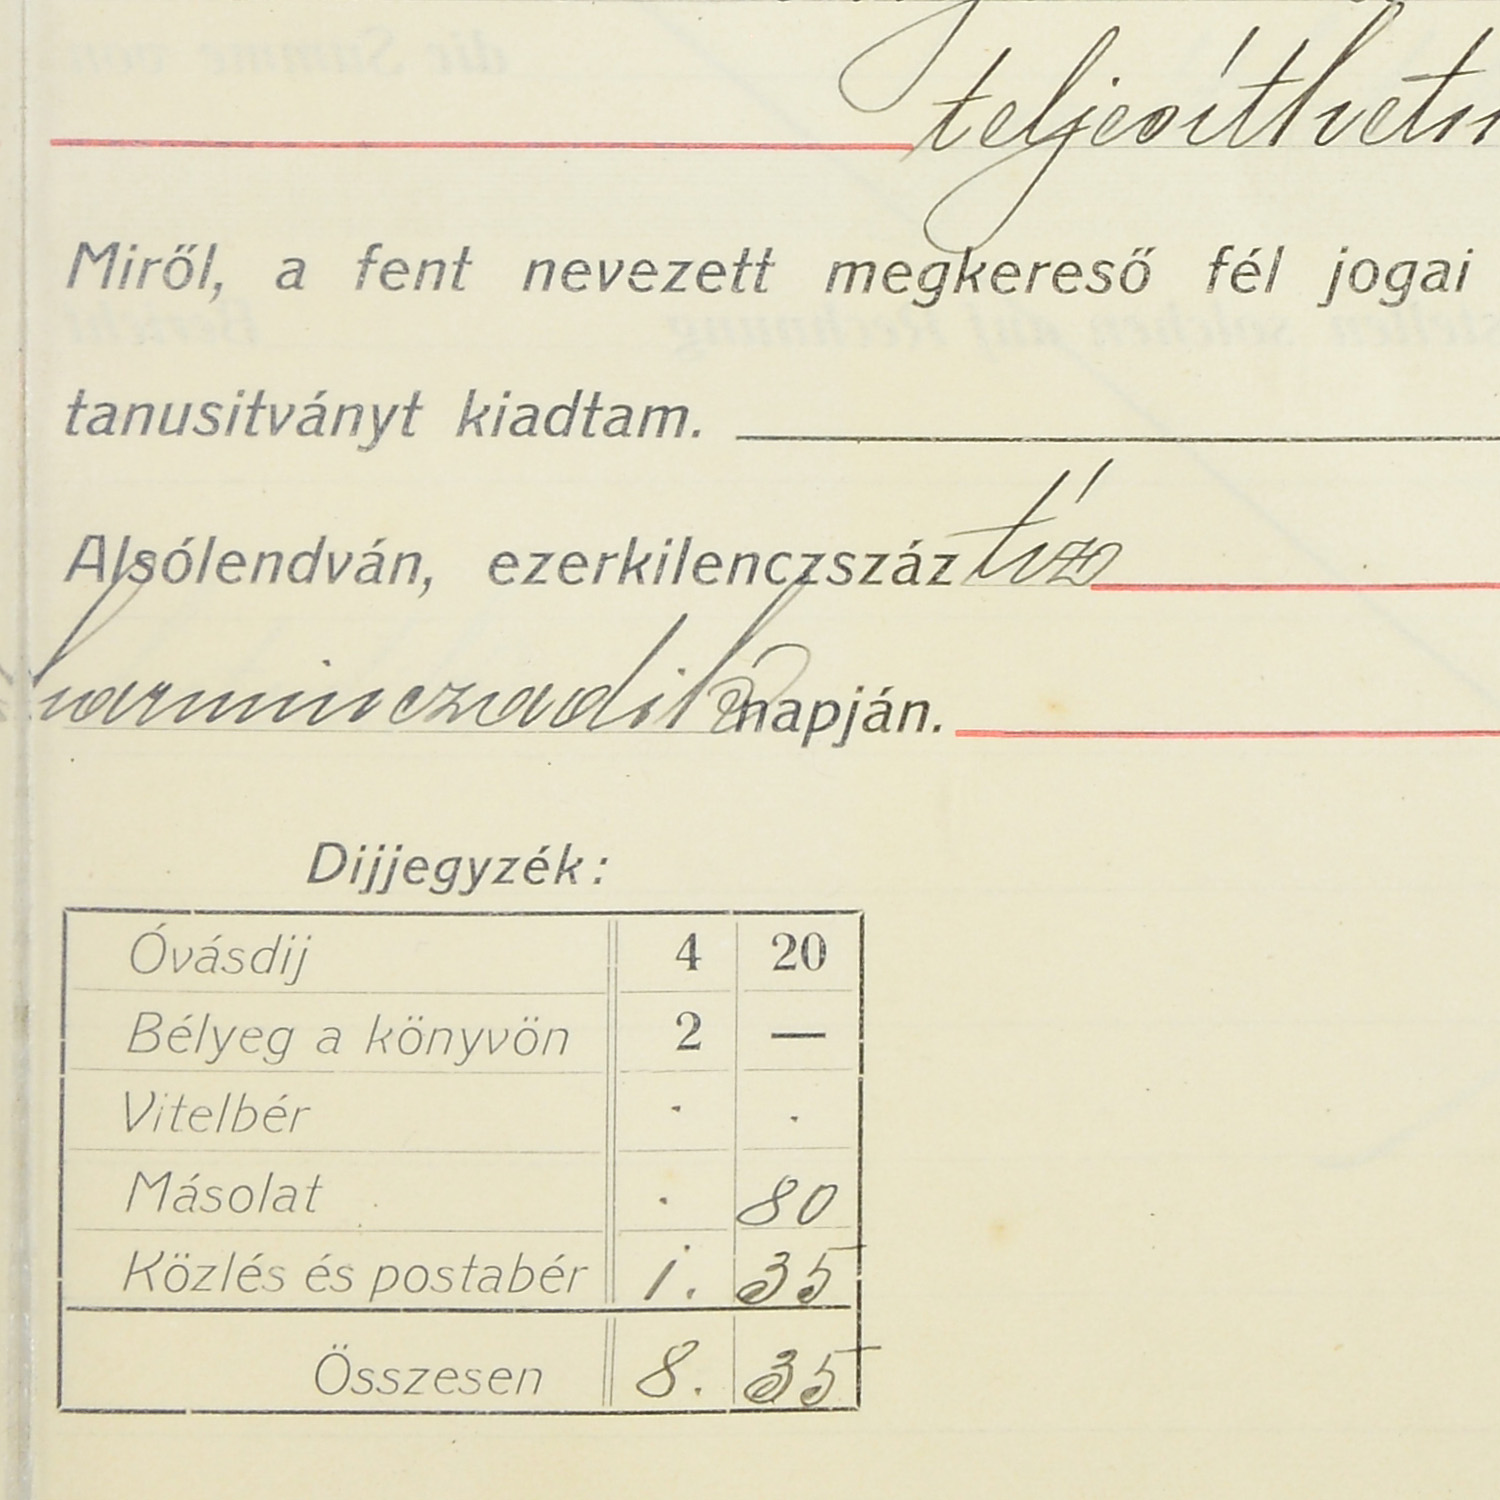 teljesíthetn
Miről, a fent nevezett megkereső fél jogai
tanusitványt kiadtam.
Alsólendván, ezerkilenczszáz tíz
harminczadik napján.
Dijjegyzék:
Óvásdij 4 20
Bélyeg a könyvön 2 —
Vitelbér . .
Másolat . 80
Közlés és postabér 1. 35
Összesen 8. 35